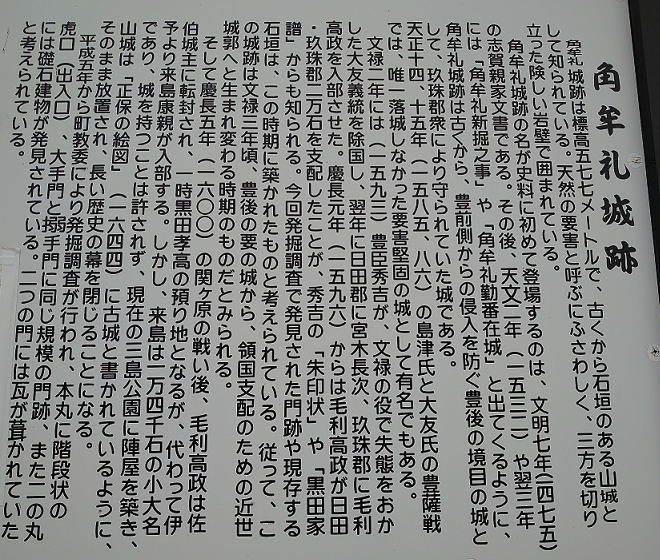 角牟礼城跡
角牟礼城跡は標高五七七メートルで、古くから石垣のある山城と
して知られている。天然の要害と呼ぶにふさわしく、三方を切り
立った険しい岩壁で囲まれている。
角牟礼城跡の名が史料に初めて登場するのは、文明七年(一四七五)
の志賀親家文書である。その後、天文二年(一五三二)や翌三年
には「角牟礼新掘之事」や「角牟礼勤番在城」と出てくるように、
角牟礼城跡は古くから、豊前側からの侵入を防ぐ豊後の境目の城と
して、玖珠郡衆により守られていた城である。
天正十四、十五年(一五八五、八六)の島津氏と大友氏の豊薩戦
では、唯一落城しなかった要害堅固の城として有名でもある。
文禄二年には(一五九三)豊臣秀吉が、文禄の役で失態をおか
した大友義統を除国し、翌年に日田郡に宮木長次、玖珠郡に毛利
高政を入部させた。慶長元年(一五九六)からは毛利高政が日田
・玖珠郡二万石を支配したことが、秀吉の「朱印状」や「黒田家
譜」からも知られる。今回発掘調査で発見された門跡や現存する
石垣は、この時期に築かれたものと考えられている。従って、こ
の城跡は文禄三年頃、豊後の要の城から、領国支配のための近世
城郭へと生まれ変わる時期のものだとみられる。
そして慶長五年(一六〇〇)の関ヶ原の戦い後、毛利高政は佐
伯城主に転封され、一時黒田孝高の預り地となるが、代わって伊
予より来島康親が入部する。しかし、来島は一万四千石の小大名
であり、城を持つことは許されず、現在の三島公園に陣屋を築き、
山城は「正保の絵図」(一六四四)に古城と書かれているように、
そのまま放置され、長い歴史の幕を閉じることになる。
平成五年から町教委により発掘調査が行われ、本丸に階段状の
虎口(出入口)、大手門と搦手門に同じ規模の門跡、また二の丸
には礎石建物が発見されている。二つの門には瓦が葺かれていた
と考えられている。